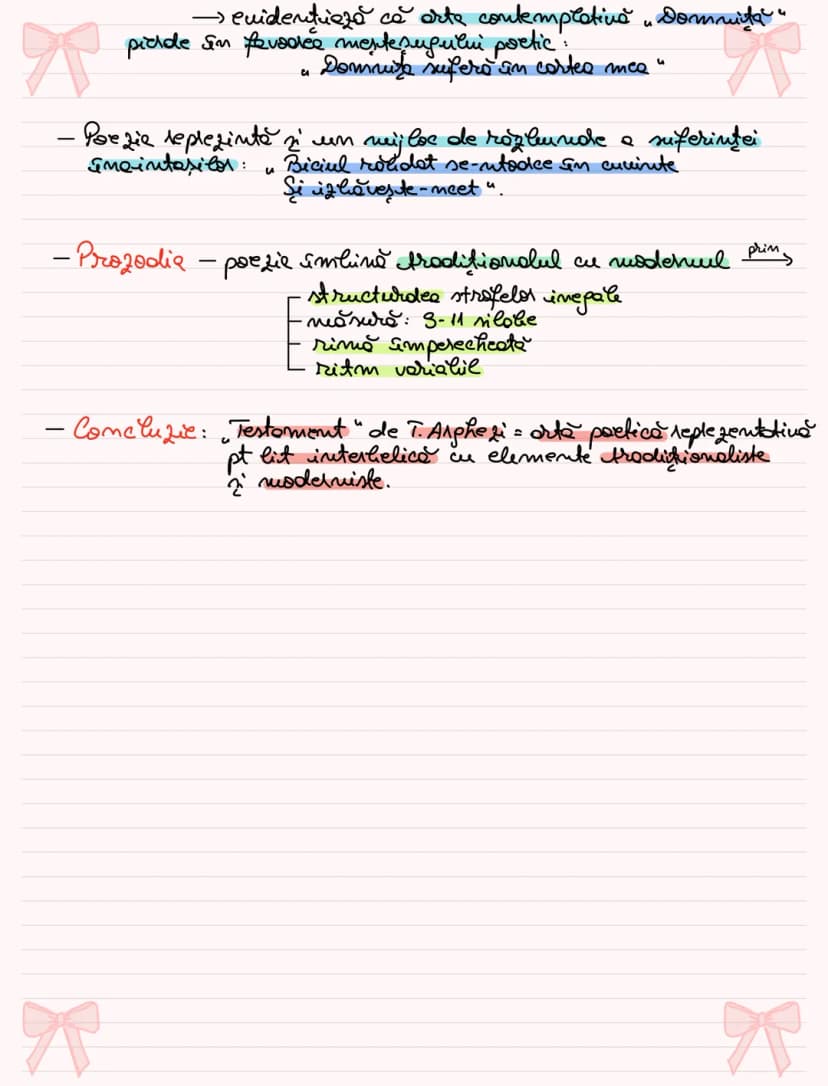 → evidențiază că arta contemplativă „Domnița"
pierde în favoarea meșteșugului poetic:
„Domnița suferă în cartea mea"
- Poezia reprezintă și un mijloc de răzbunare a suferinței
înaintașilor: „Biciul răbdat se-ntoarce în cuvinte
Și izbăvește-ncet".
- Prozodia - poezia îmbină tradiționalul cu modernul prin →
structurarea strofelor inegale
măsură: 9-11 silabe
rimă împerecheată
ritm variabil
- Concluzie: „Testament" de T. Arghezi = artă poetică reprezentativă
pt lit interbelică cu elemente tradiționaliste
și moderniste.